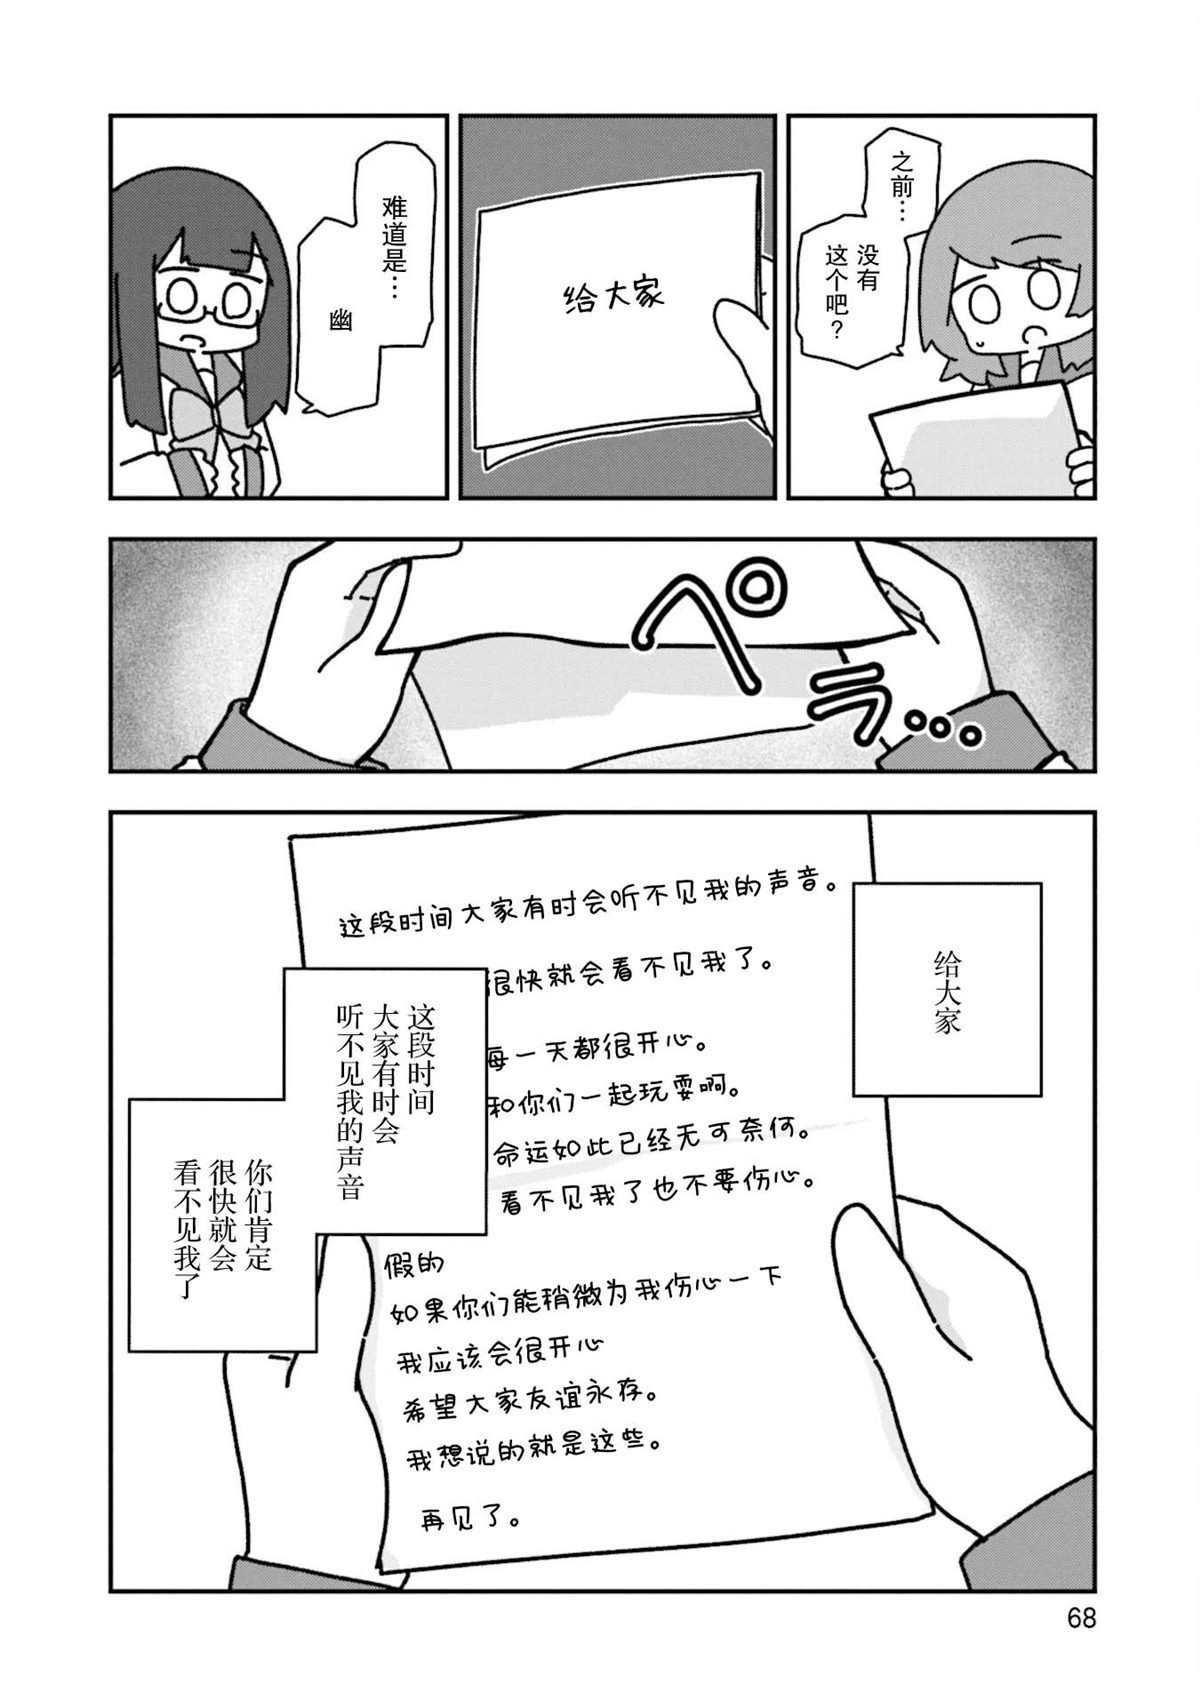 之前…
没有
这个吧？
给大家
难道是…
幽
ペラ...
给大家
这段时间
大家有时会
听不见我的声音
你们肯定
很快就会
看不见我了
这段时间大家有时会听不见我的声音。
很快就会看不见我了。
每一天都很开心。
和你们一起玩耍啊。
命运如此已经无可奈何。
看不见我了也不要伤心。
假的
如果你们能稍微为我伤心一下
我应该会很开心
希望大家友谊永存。
我想说的就是这些。
再见了。
68